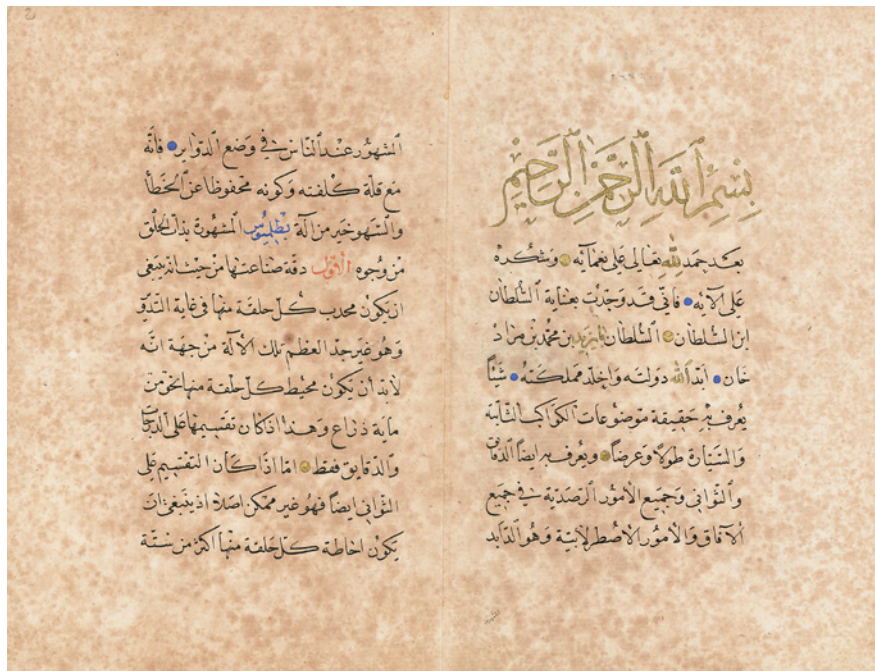 بسم الله الرحمن الرحيم
بعد حمد لله تعالى على نعمائه وشكره
على آلائه فاني قد وجدت بعناية السلطان
ابن السلطان السلطان بايزيد بن محمد بن مراد
خان ابد الله دولته واخلد مملكته شيئاً
يعرف به حقيقة موضوعات الكواكب الثابتة
والسيارة طولا وعرضاً ويعرف به ايضاً الدقائق
والثواني وجميع الامور الرصدية في جميع
الآفاق والامور الاصطرلابية وهو الدابد
المشهور عند الناس في وضع الدوابر فانه
مع قلة كلفته وكونه محفوظا عن الخطأ
والسهو خير من آلة بطلميوس المشهورة بذات الحلق
من وجوه الاول دقة صناعتها من حيث انه ينبغي
ان يكون محدب كل حلقة منها في غاية التدو
وهو غير جد العظم تلك الآلة من جهة انه
لا بد ان يكون محيط كل حلقة منها نحو من
ماية ذراع وهذا اذا كان تقسيمها على الدرجات
والدقايق فقط اما اذا كان التقسيم على
الثواني ايضاً فهو غير ممكن اصلا اذ ينبغي ان
يكون احاطة كل حلقة منها اكثر من ستة